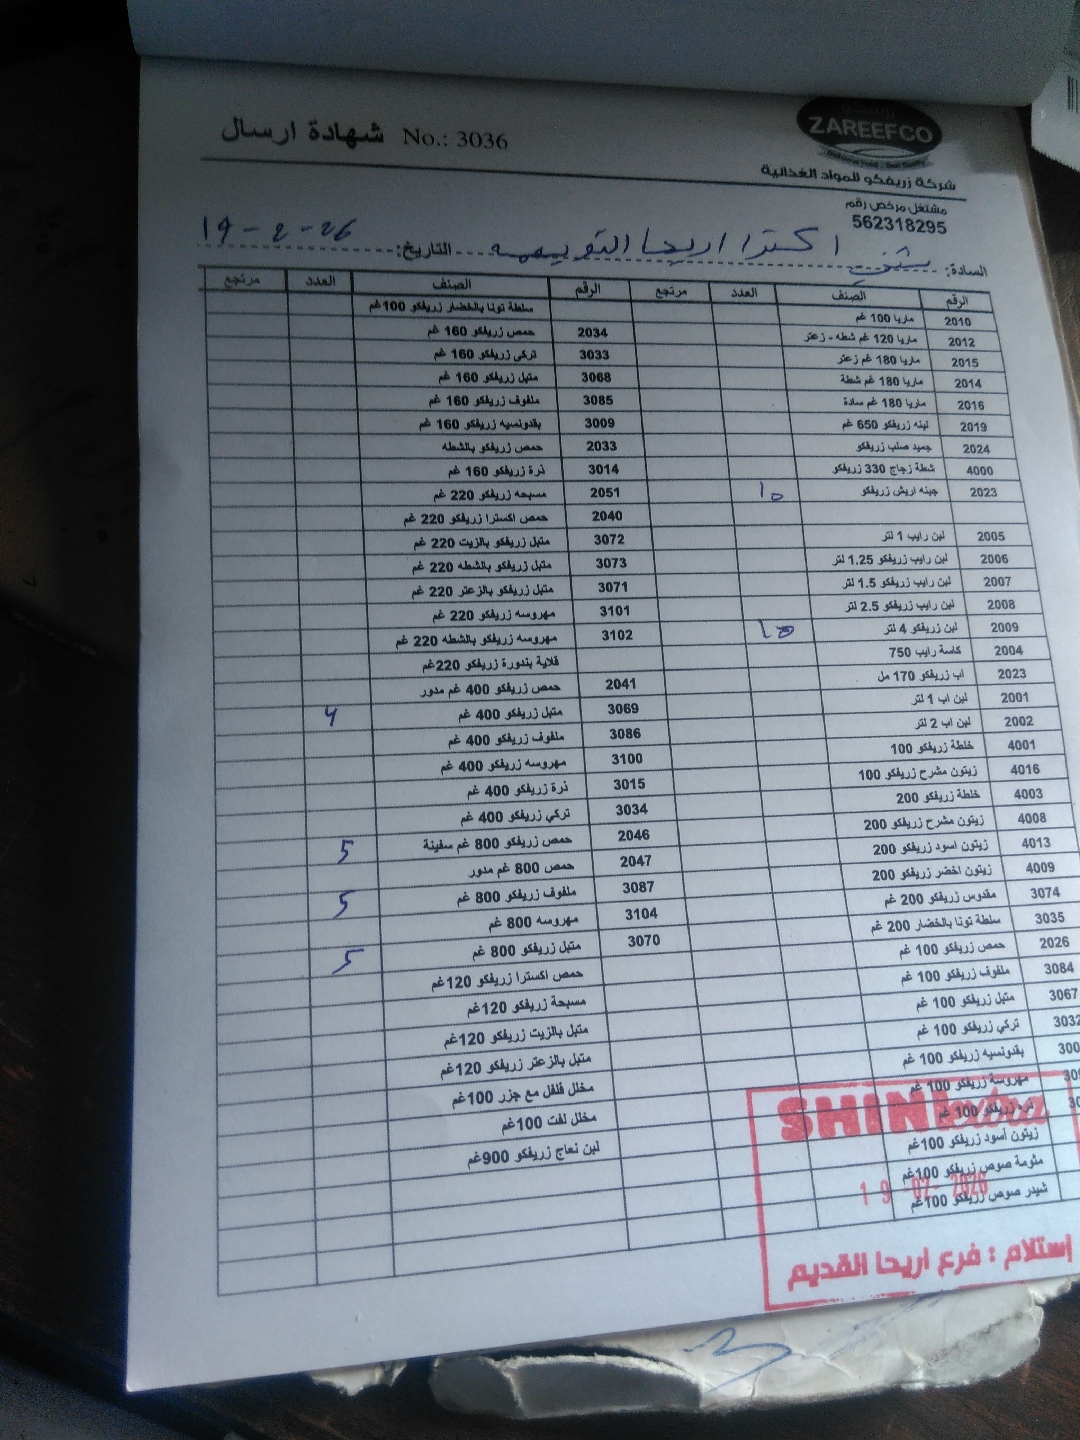 ZAREEFCO
شهادة ارسال No.: 3036
شركة زريفكو للمواد الغذائية
مشتغل مرخص رقم
562318295
السادة: شني اكسترا اريحا القديمه التاريخ: 19-2-26
الرقم الصنف العدد مرتجع الرقم الصنف العدد مرتجع
2010 ماريا 100 غم سلطة تونا بالخضار زريفكو 100غم
2012 ماريا 120 غم شطه - زعتر 2034 حمص زريفكو 160 غم
2015 ماريا 180 غم زعتر 3033 تركي زريفكو 160 غم
2014 ماريا 180 غم شطة 3068 متبل زريفكو 160 غم
2016 ماريا 180 غم سادة 3085 ملفوف زريفكو 160 غم
2019 لبنه زريفكو 650 غم 3009 بقدونسيه زريفكو 160 غم
2024 جميد صلب زريفكو 2033 حمص زريفكو بالشطه
4000 شطة زجاج 330 زريفكو 3014 ذرة زريفكو 160 غم
2023 جبنه اريش زريفكو 10 2051 مسبحه زريفكو 220 غم
2040 حمص اكسترا زريفكو 220 غم
2005 لبن رايب 1 لتر 3072 متبل زريفكو بالزيت 220 غم
2006 لبن رايب زريفكو 1.25 لتر 3073 متبل زريفكو بالشطه 220 غم
2007 لبن رايب زريفكو 1.5 لتر 3071 متبل زريفكو بالزعتر 220 غم
2008 لبن رايب زريفكو 2.5 لتر 3101 مهروسه زريفكو 220 غم
2009 لبن زريفكو 4 لتر 10 3102 مهروسه زريفكو بالشطه 220 غم
2004 كاسة رايب 750 قلاية بندورة زريفكو 220غم
2023 اب زريفكو 170 مل 2041 حمص زريفكو 400 غم مدور
2001 لبن اب 1 لتر 3069 متبل زريفكو 400 غم 4
2002 لبن اب 2 لتر 3086 ملفوف زريفكو 400 غم
4001 خلطة زريفكو 100 3100 مهروسه زريفكو 400 غم
4016 زيتون مشرح زريفكو 100 3015 ذرة زريفكو 400 غم
4003 خلطة زريفكو 200 3034 تركي زريفكو 400 غم
4008 زيتون مشرح زريفكو 200 2046 حمص زريفكو 800 غم سفينة 5
4013 زيتون اسود زريفكو 200 2047 حمص 800 غم مدور
4009 زيتون اخضر زريفكو 200 3087 ملفوف زريفكو 800 غم 5
3074 مقدوس زريفكو 200 غم 3104 مهروسه 800 غم
3035 سلطة تونا بالخضار 200 غم 3070 متبل زريفكو 800 غم 5
2026 حمص زريفكو 100 غم حمص اكسترا زريفكو 120غم
3084 ملفوف زريفكو 100 غم مسبحة زريفكو 120غم
3067 متبل زريفكو 100 غم متبل بالزيت زريفكو 120غم
3032 تركي زريفكو 100 غم متبل بالزعتر زريفكو 120غم
300 بقدونسيه زريفكو 100 غم مخلل فلفل مع جزر 100غم
مهروسة زريفكو 100 غم مخلل لفت 100غم
ذره زريفكو 100 غم لبن نعاج زريفكو 900غم
زيتون أسود زريفكو 100غم
مثومة صوص زريفكو 100غم
شيدر صوص زريفكو 100غم
SHINI extra
19 -02- 2026
إستلام : فرع اريحا القديم